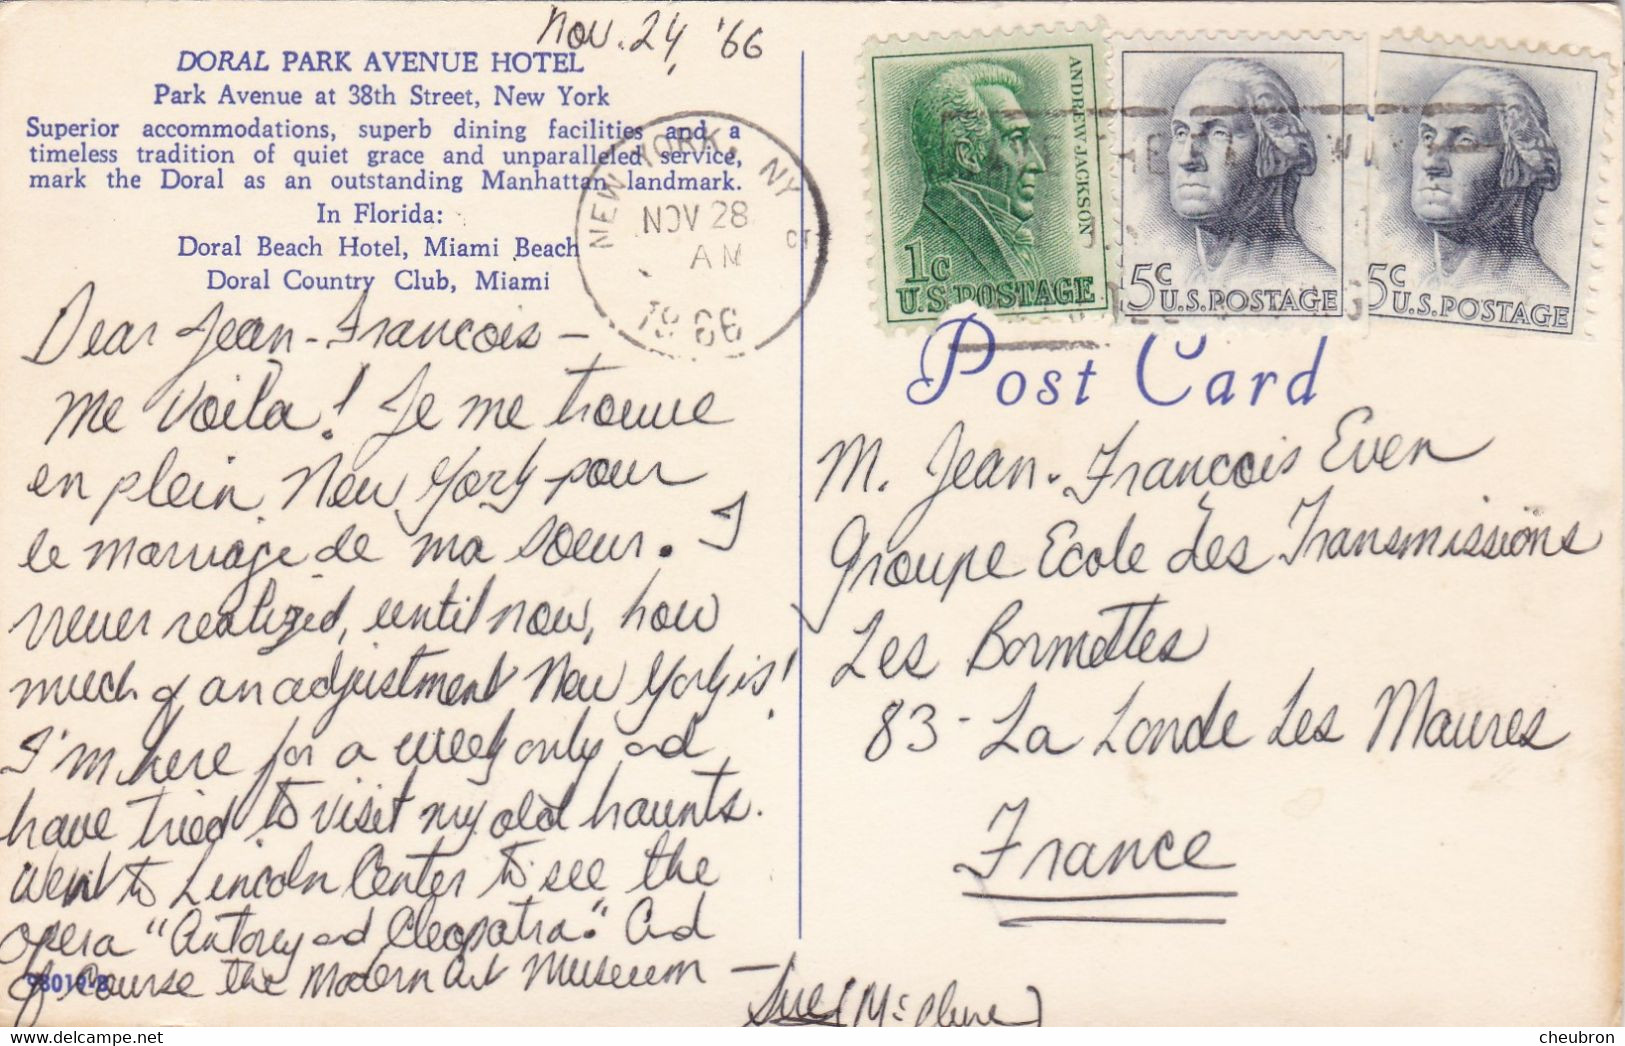 Nov. 24, '66
DORAL PARK AVENUE HOTEL
Park Avenue at 38th Street, New York
Superior accommodations, superb dining facilities and a
timeless tradition of quiet grace and unparalleled service,
mark the Doral as an outstanding Manhattan landmark.
In Florida:
Doral Beach Hotel, Miami Beach
Doral Country Club, Miami
NEW YORK, NY
NOV 28
AM
1966
Dear Jean-Francois -
Me voila! Je me trouve
en plein New York pour
le marriage de ma soeur. I
never realized, until now, how
much of an adjustment New York is!
I'm here for a week only and
have tried to visit my old haunts.
Went to Lincoln Center to see the
opera "Antony and Cleopatra." And
of course the Modern Art Museum -
Sue (
98019-B
ANDREW JACKSON
1c
U.S. POSTAGE
5c
U.S. POSTAGE
5c
U.S. POSTAGE
Post Card
M. Jean-Francois Even
Groupe Ecole des Transmissions
Les Bormettes
83 - La Londe Les Maures
France
cheubron